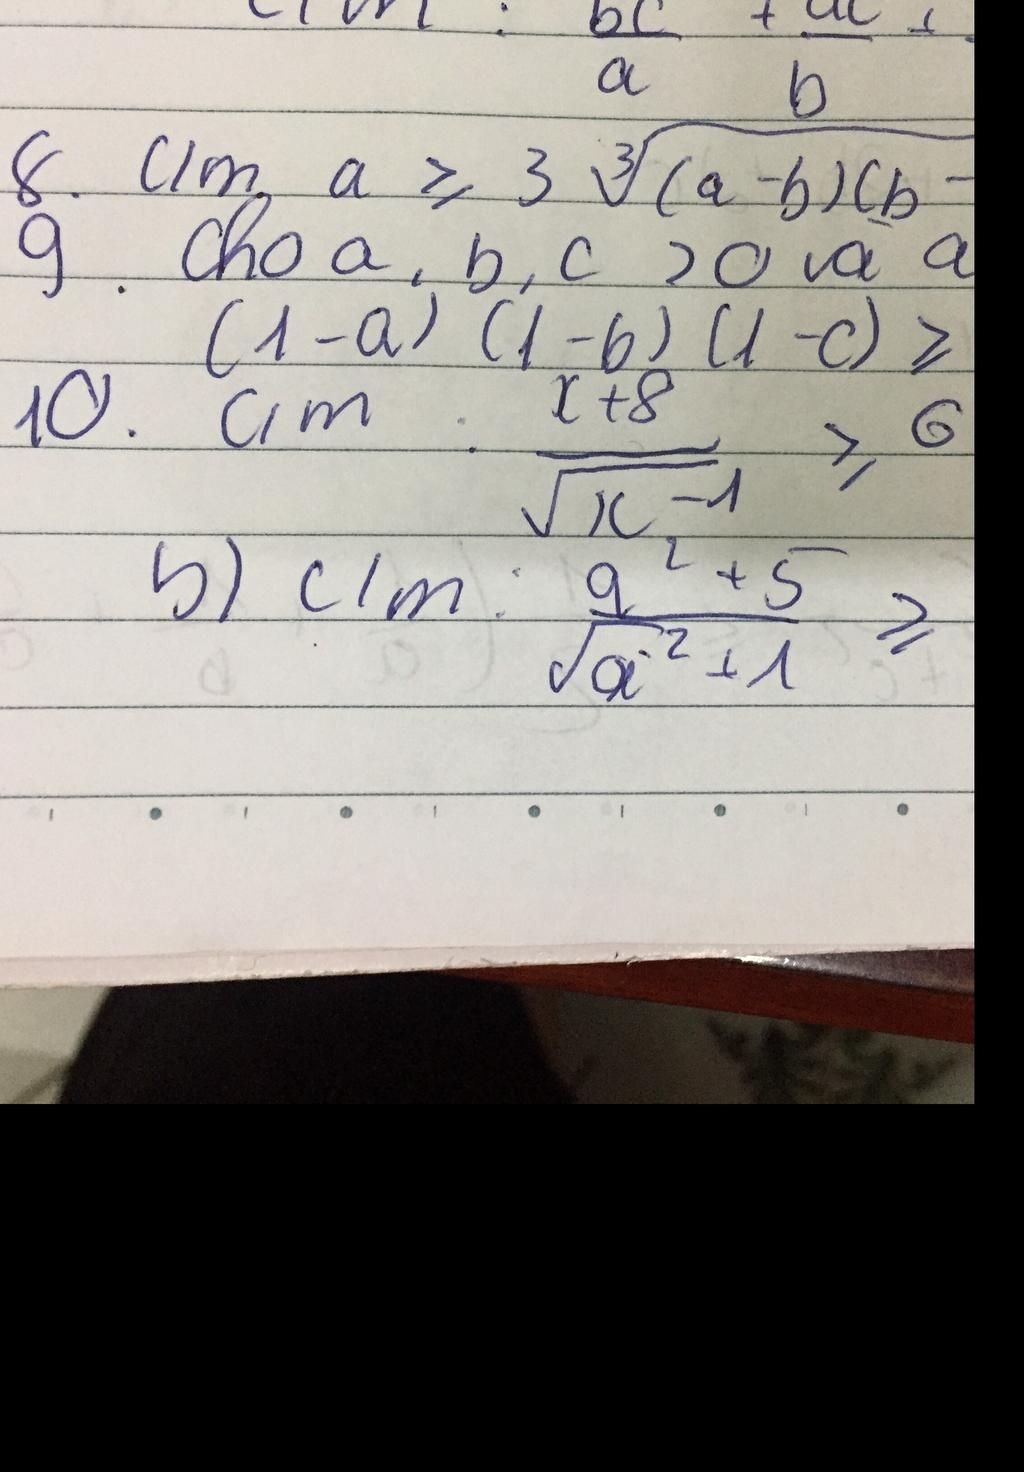 c/m : bc/a + ac/b +
8. c/m a ≥ 3 ∛(a-b)(b-
9. Cho a, b, c >0 và a
(1-a) (1-b) (1-c) ≥
10. c/m : x+8/√x-1 ≥ 6
b) c/m : a²+5/√a²+1 ≥